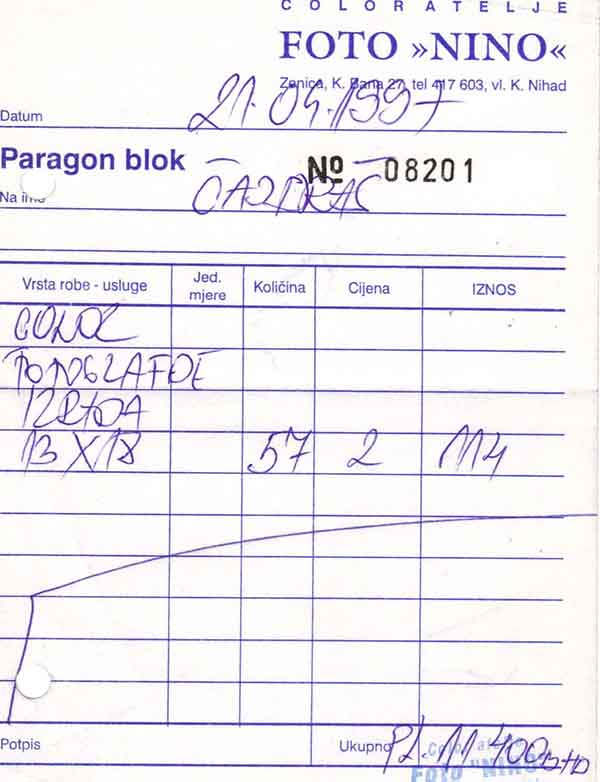 COLORATELJE
FOTO »NINO«
Zenica, K. Bana 27, tel 417 603, vl. K. Nihad
Datum 21.04.1997
Paragon blok № 08201
Na ime
Vrsta robe - usluge Jed. mjere Količina Cijena IZNOS
COLOR
FOTOGRAFIJE
IZRADA
13 X 18 57 2 114
Potpis Ukupno 11400
FOTO "NINO"